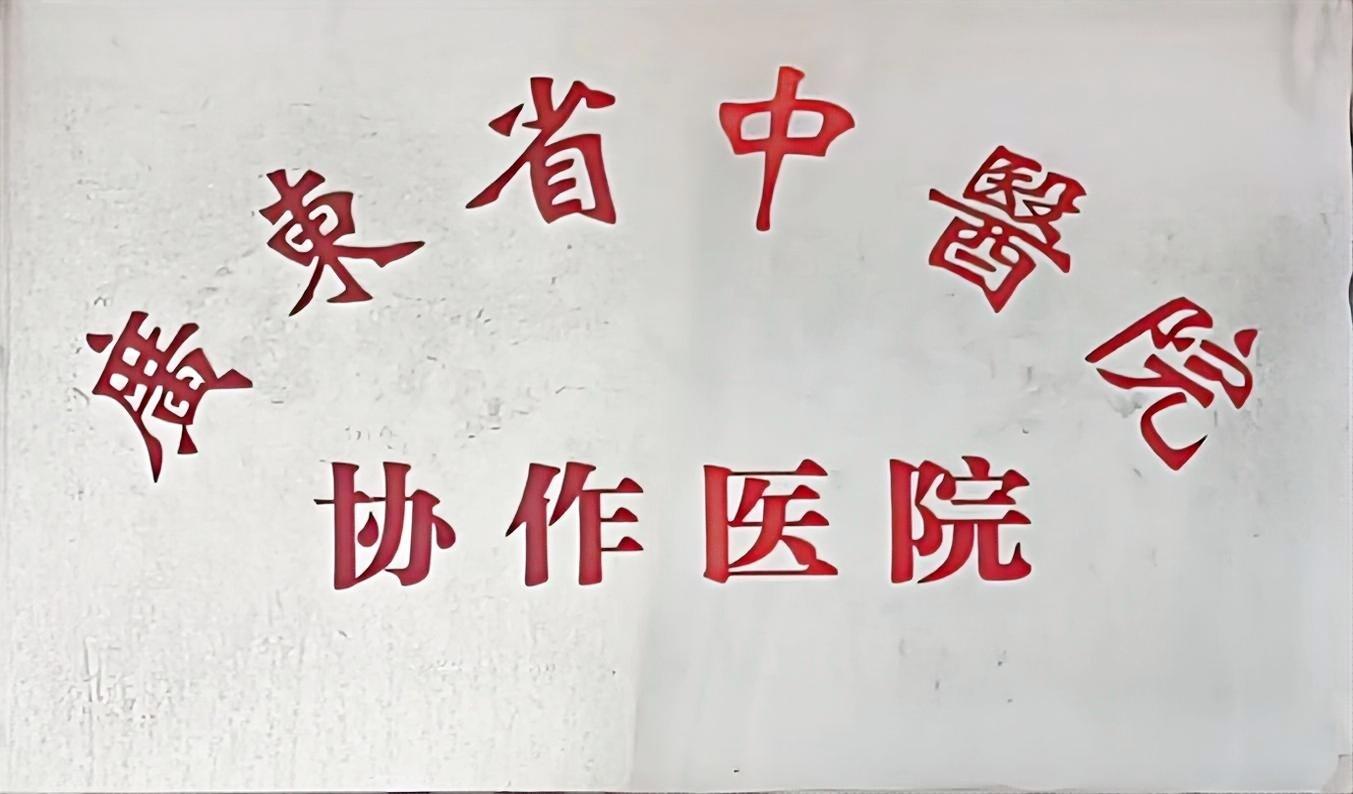 廣東省中醫院
协作医院